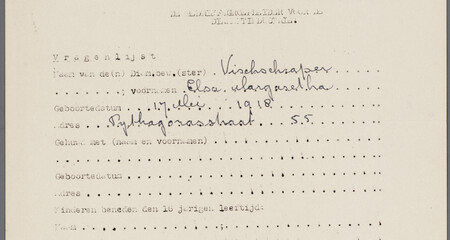 DE BEDRIJFGENEESHEER VOOR DE
V r a g e n l i j s t
Naam van de(n) Diambew.(ster) Vischschraper
; voornamen Elsa Margaretha
Geboortedatum 17 Mei 1918
Adres Pythagorasstraat 55
Gehuwd met (naam en voornamen)
Geboortedatum
Adres
Kinderen beneden den 16 jarigen leeftijd:
Naam ;